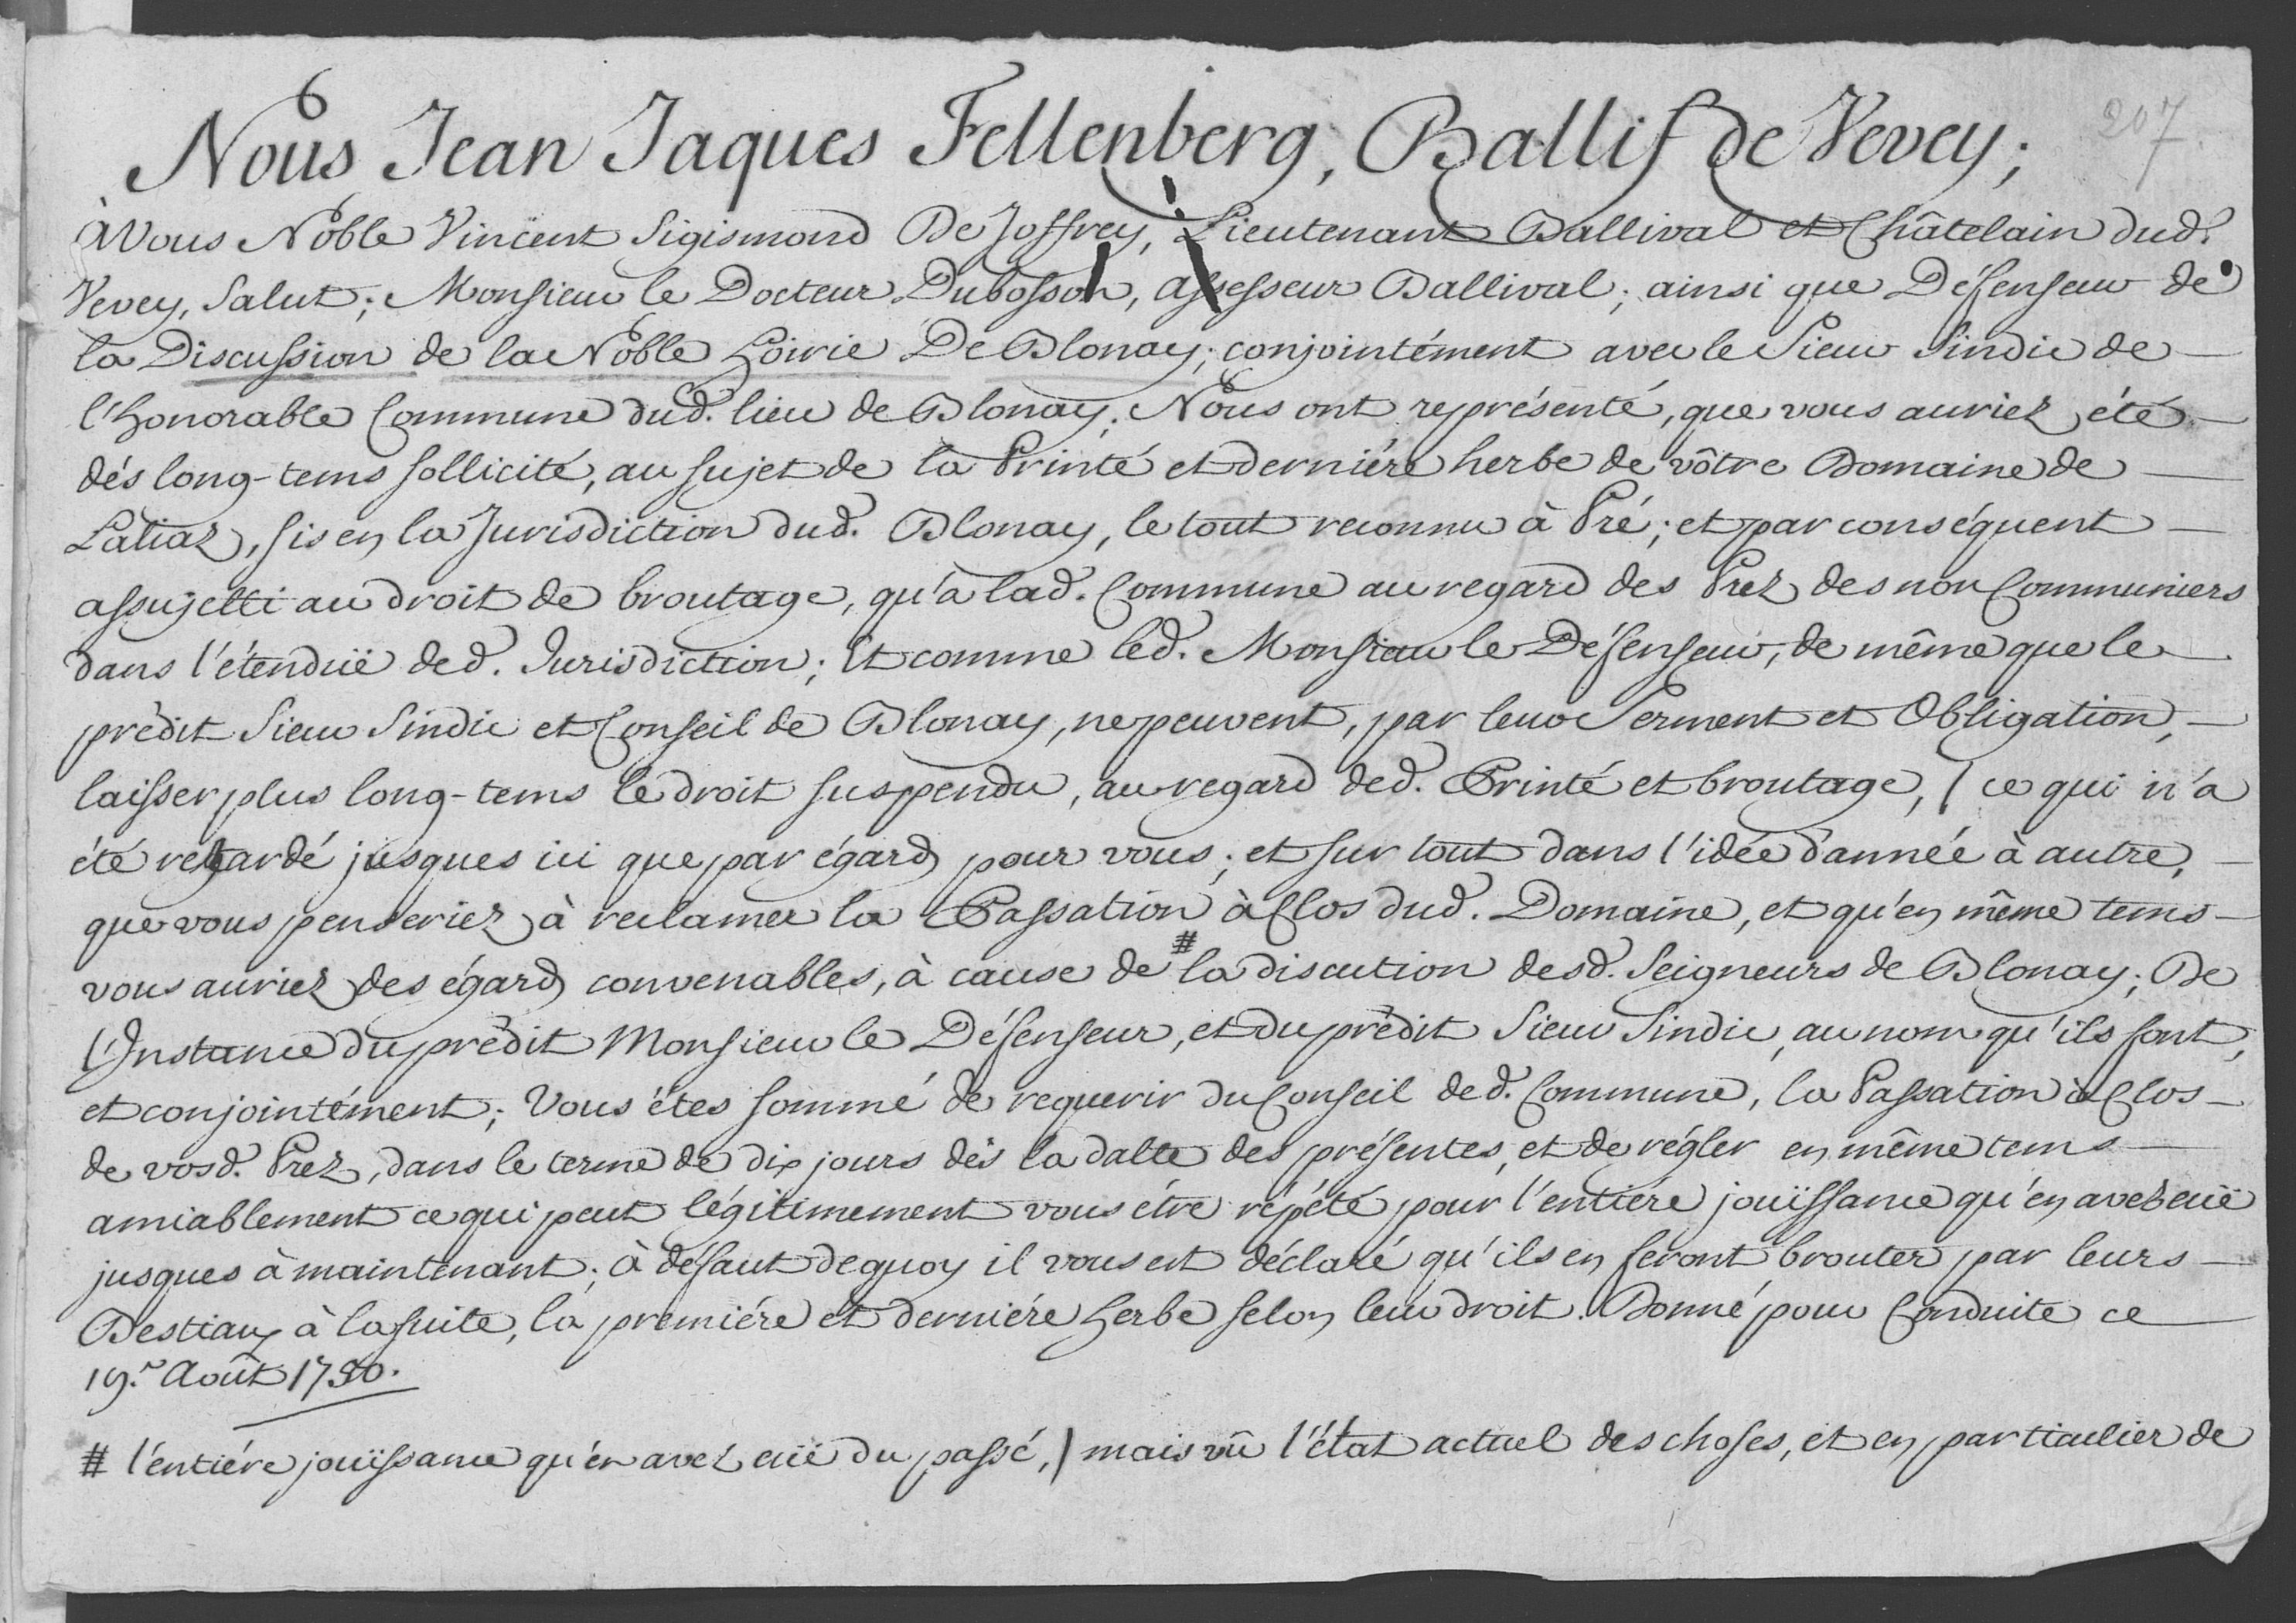 207.
Nous Jean Jaques Fellenberg, Ballif de Vevey;
à Vous Noble Vincent Sigismond De Joffrey, Lieutenant Ballival et Châtelain dud.
Vevey, Salut; Monsieur le Docteur Dubosson, assesseur Ballival; ainsi que Défenseur de
la Discussion de la Noble Hoirie De Blonay; conjointément avec le Sieur Sindic de
l'honorable Commune dud. lieu de Blonay; Nous ont représenté, que vous auriez été
dés long-tems sollicité, au sujet de la Printé et derniére herbe de vôtre Domaine de
Laliaz, sis en la Jurisdiction dud. Blonay, le tout reconnu à Pré; et par conséquent
assujetti au droit de broutage, qu'a lad. Commune au regard des Prez des non Communiers
dans l'étenduë de d. Jurisdiction; Et comme led. Monsieur le Défenseur, de même que le
prèdit Sieur Sindic et Conseil de Blonay, ne peuvent, par leur Serment et Obligation,
laisser plus long-tems le droit suspendu, au regard de d. Printé et broutage, / ce qui n'a
été retardé jusques ici que par égard pour vous; et sur tout dans l'idée d'année à autre,
que vous penseriez à reclamer la Passation à Clos dud. Domaine, et qu'en même tems
vous auriez des égard convenables, à cause de # la discution desd. Seigneurs de Blonay; De
l'Instance du prèdit Monsieur le Défenseur, et du prèdit Sieur Sindic, au nom qu'ils font,
et conjointément; Vous étes sommé de requerir du Conseil de d. Commune, la Passation à Clos
de vosd. Prez, dans le terme de dix jours dès la datte des présentes, et de régler en même tems
amiablement ce qui peut légitimement vous étre répété pour l'entiére jouïssance qu'en avez euë
jusques à maintenant; à défaut dequoy il vous est déclaré qu'ils en feront brouter par leurs
Bestiaux à la suite, la premiére et derniére herbe selon leur droit. Donné pour Conduite ce
19.e Août 1790.
# l'entiére jouïssance qu'en avez euë du passé, / mais vû l'état actuel des choses, et en particulier de